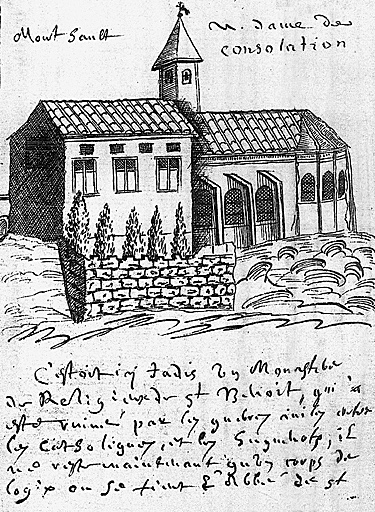 Mont Sault
N. dame de
consolation
C'estoit icy Jadis Un Monastere
de Religieux de st Benoit, qui a
esté ruiné par les guerres civiles entre
les Catholiques, et les Hugenots, il
ne reste maintenant qu'un corps de
logix ou se tient l'Abbé de st